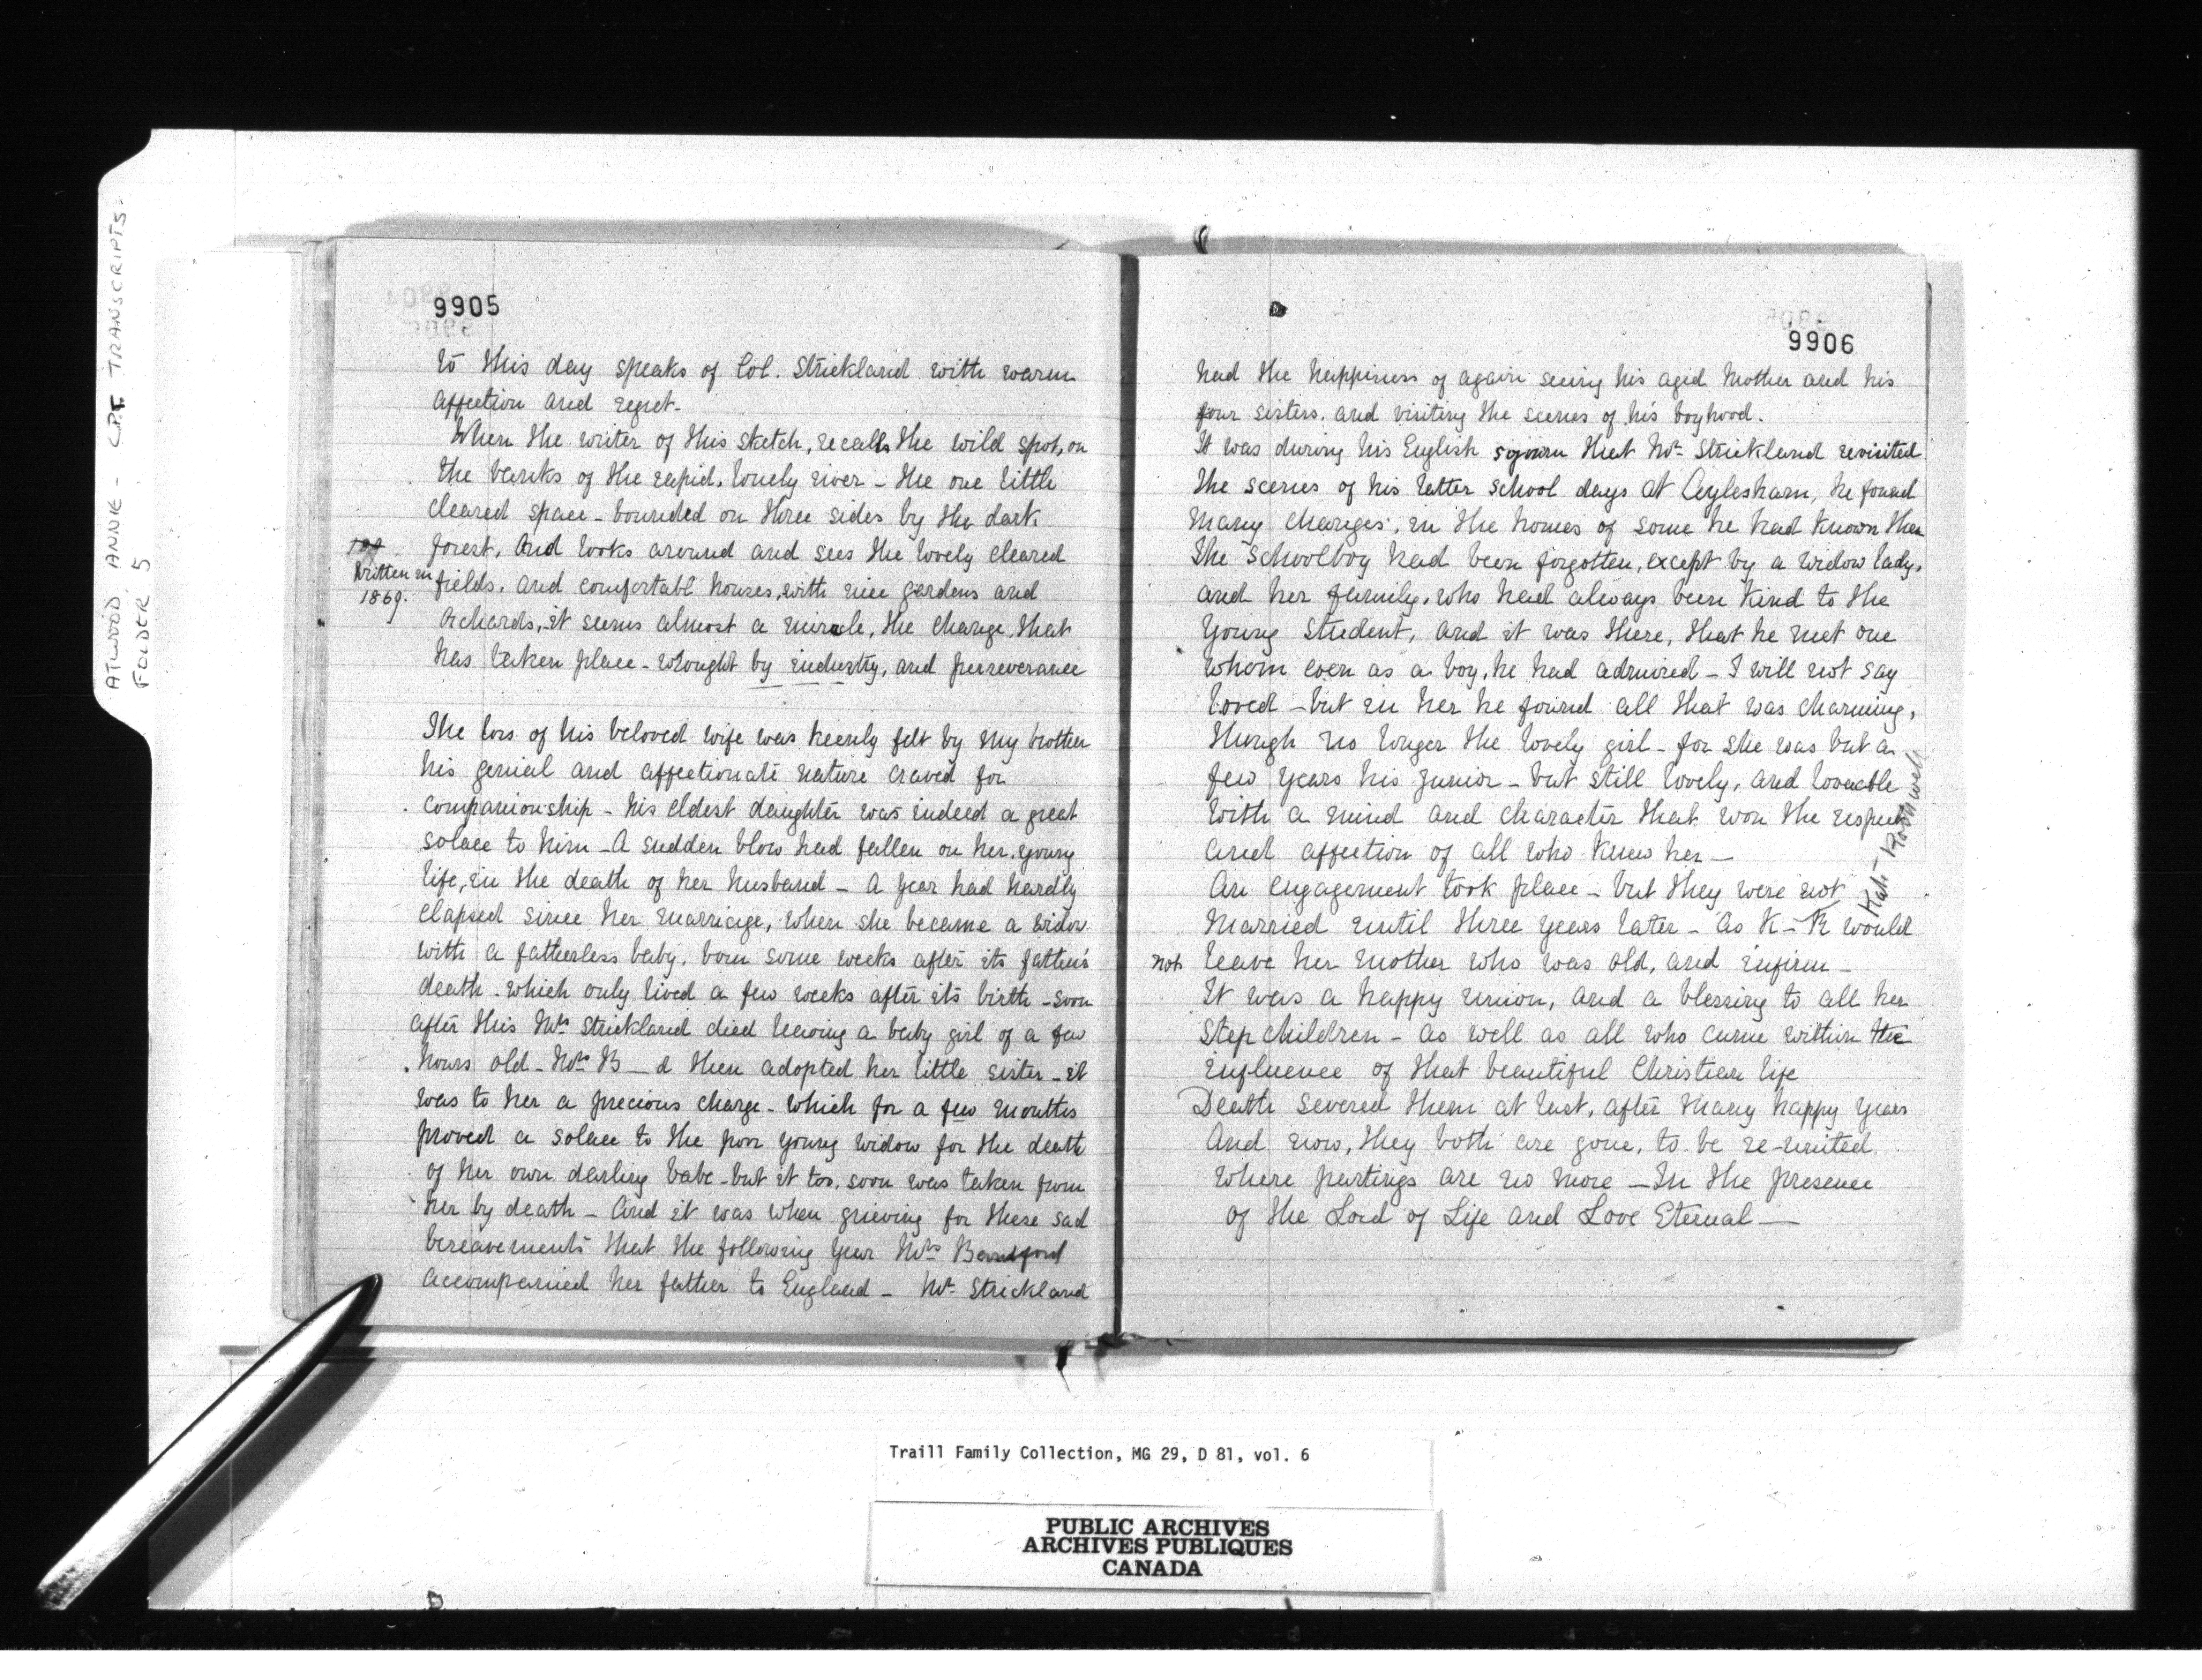 ATWOOD, ANNIE - C.P.T. TRANSCRIPTS.
FOLDER 5
9905
to this day speaks of Col. Strickland with warm
affection and regret-
When the writer of this sketch, recalls the wild spot, on
the banks of the rapid, lonely river - the one little
cleared space - bounded on three sides by the dark
forest, And looks around and sees the lovely cleared
Written in
1869.
fields, and comfortabl houses, with nice gardens and
Orchards, it seems almost a miracle, the change that
has taken place - wrought by industry, and perseverance
The loss of his beloved wife was keenly felt by my brother
his genial and affectionate nature craved for
companionship - his eldest daughter was indeed a great
solace to him - A sudden blow had fallen on her young
life, in the death of her husband - A year had hardly
elapsed since her marriage, when she became a widow
with a fatherless baby, born some weeks after its father's
death - which only lived a few weeks after its birth - soon
after this Mrs Strickland died leaving a baby girl of a few
hours old - Mrs B_d then adopted her little sister - it
was to her a precious charge - which for a few months
proved a solace to the poor young widow for the death
of her own darling babe - but it too, soon was taken from
her by death - And it was when grieving for these sad
bereavements that the following year Mrs Beresford
accompanied her father to England - Mr Strickland
9906
had the happiness of again seeing his aged Mother and his
four sisters, and visiting the scenes of his boyhood.
It was during his English sojourn that Mr Strickland revisited
the scenes of his latter school days at Aylesham, he found
many changes, in the homes of some he had known then
the schoolboy had been forgotten, except by a widow lady,
and her family, who had always been kind to the
young student, and it was there, that he met one
whom even as a boy, he had admired - I will not say
loved - but in her he found all that was charming,
though no longer the lovely girl - for she was but a
few years his junior - but still lovely, and loveable
with a mind and character that won the respect
and affection of all who knew her -
Kate Rothwell
An engagement took place - but they were not
married until three years later - as K - R would
not leave her mother who was old, and infirm -
It was a happy union, and a blessing to all her
stepchildren - as well as all who came within the
influence of that beautiful Christian life
Death severed them at last, after many happy years
And now, they both are gone, to be re-united
where partings are no more - In the presence
of the Lord of Life and Love Eternal -
Traill Family Collection, MG 29, D 81, vol. 6
PUBLIC ARCHIVES
ARCHIVES PUBLIQUES
CANADA